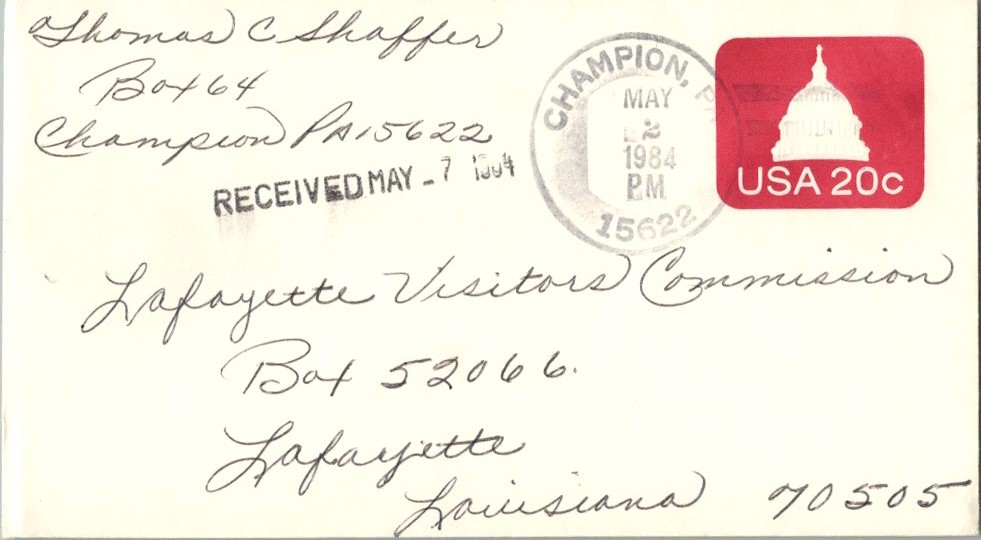 Thomas C Shaffer
Box 64
Champion PA 15622
RECEIVED MAY - 7 1984
CHAMPION, PA
MAY
2
1984
PM
15622
USA 20c
Lafayette Visitors Commission
Box 52066.
Lafayette
Louisiana 70505